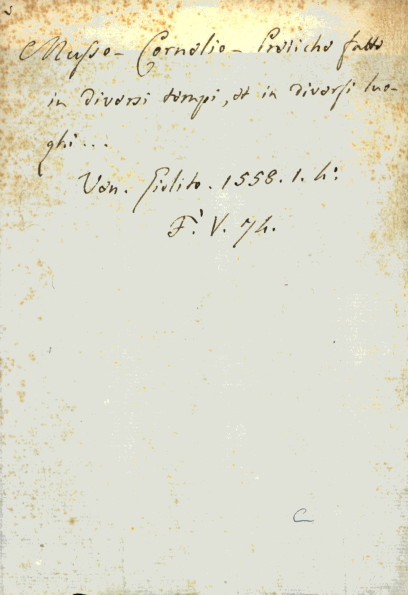 Musso - Cornelio - Prediche fatte
in diversi tempi, et in diversi luo-
ghi...
Ven. Giolito. 1558. 1. 4°.
F. V. 74.
C